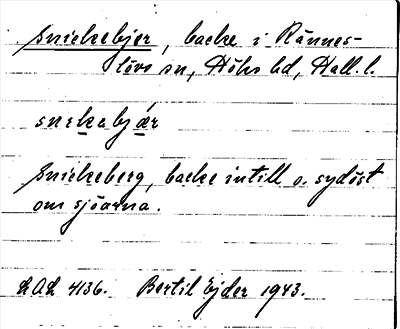 Snickebjer, backe i Rännes-
lövs sn, Höks hd, Hall. l.
snekabjær
Snickeberg, backe intill o. sydöst
om sjöarna.
LAL 4136. Bertil Ejder 1943.